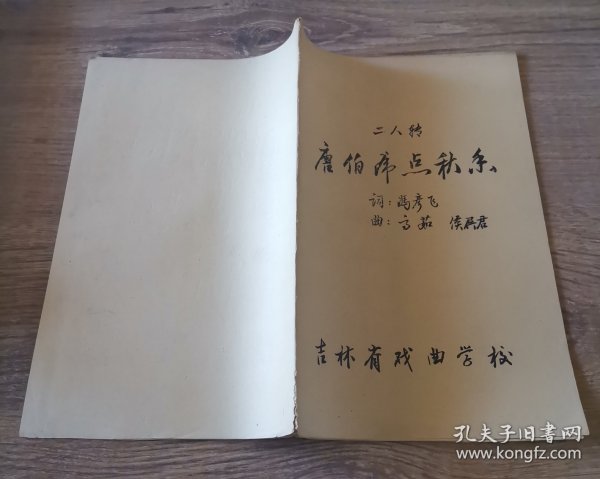 二人转
唐伯虎点秋香
词：冯彦飞
曲：高茹 侯君
吉林省戏曲学校
孔夫子旧书网
www.kongfz.com